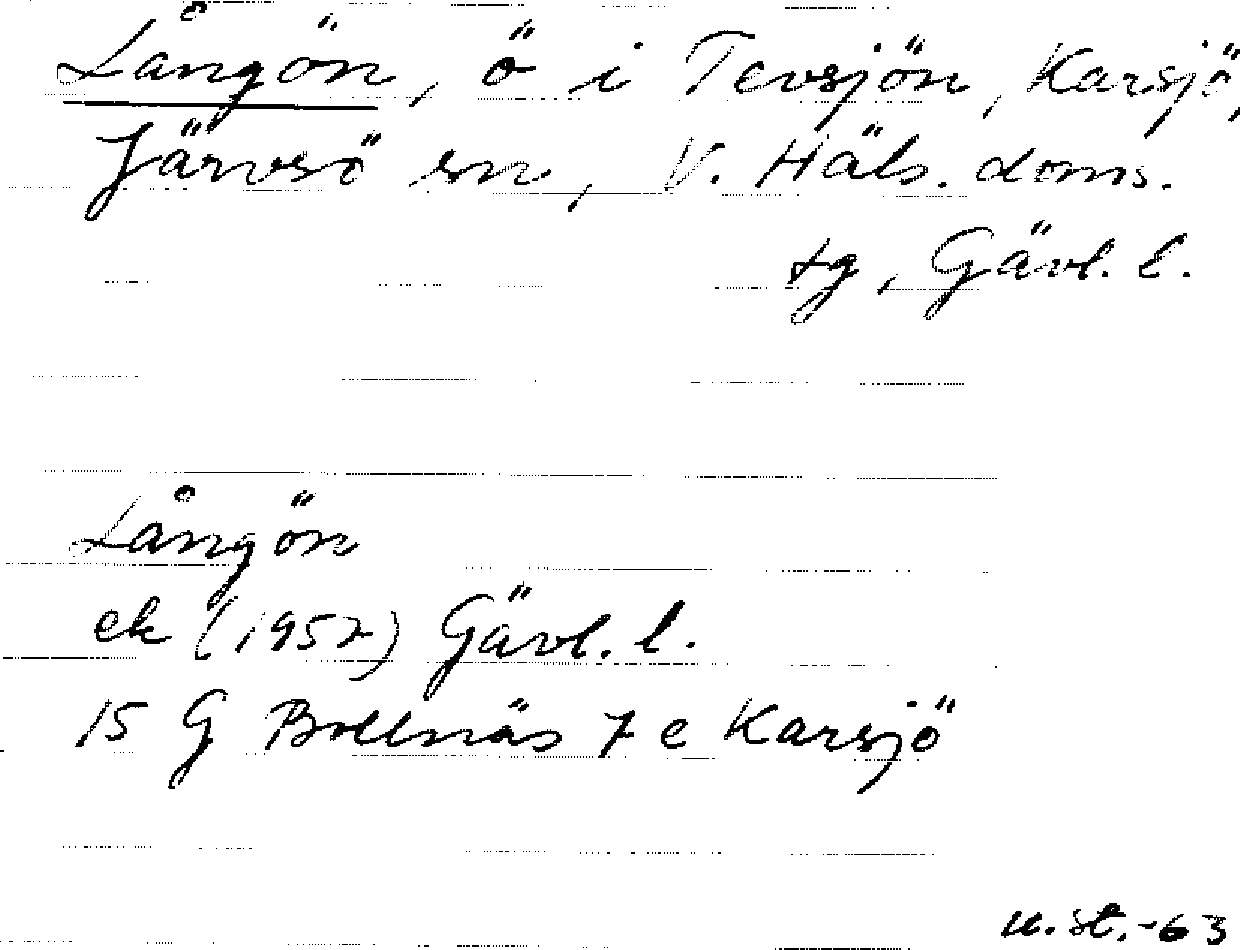 Långön, ö i Tevsjön, Karsjö,
Järvsö sn, V. Häls. doms.
tg, Gävl. l.
Långön
ek (1957) Gävl. l.
15 G Bollnäs 7 e Karsjö
u. st. -63